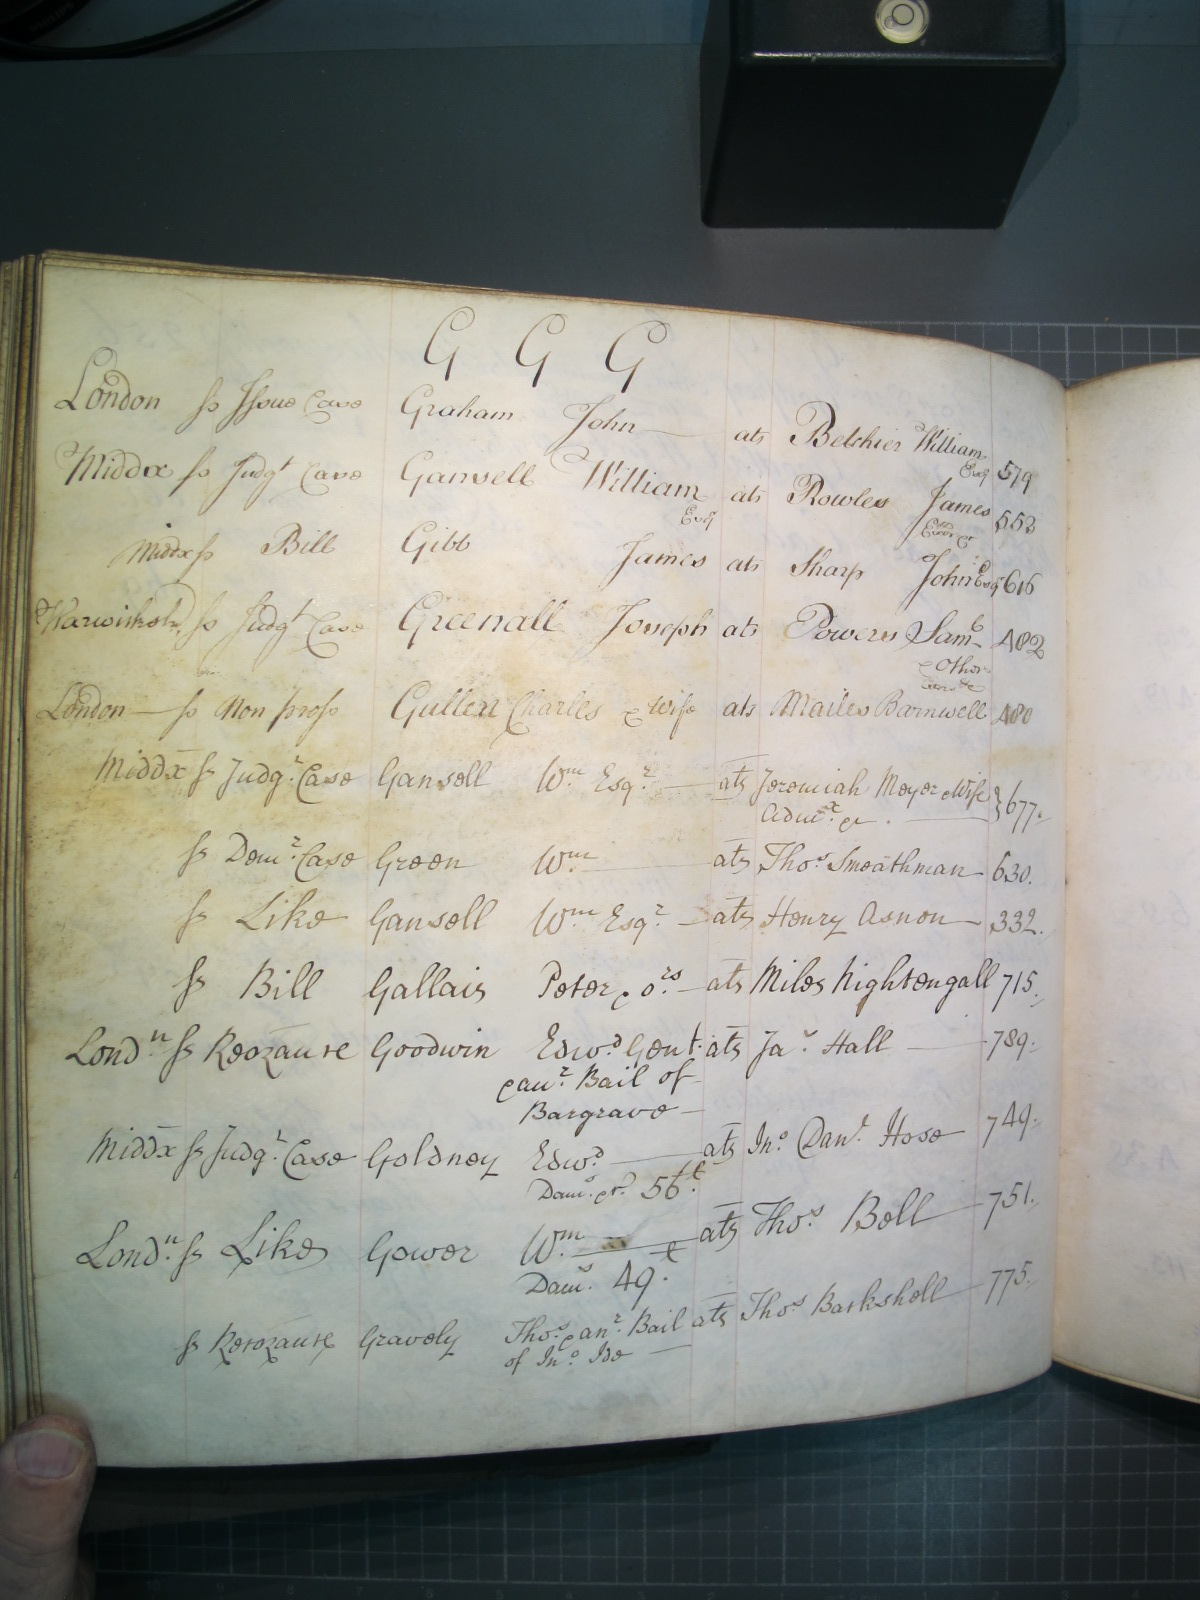 G G G
London ss Issue Case Graham John ats Belchier William Esq 579
Middx ss Judgt Case Gansell William Esq ats Rowles James Exor &c 552
Middx ss Bill Gibb James ats Sharp John Esq 616
Warwicksh ss Judgt Case Greenall Joseph ats Powers Saml & Others 482
London ss Non pross Gullen Charles & Wife ats Mailes Barnwell 480
Middx ss Judgt Case Gansell Wm Esqr ats Jeremiah Meyer & Wife 677.
Admx &c.
ss Demr Case Green Wm ats Thos Smeathman 630.
ss Like Gansell Wm Esqr ats Henry Asnon 332.
ss Bill Gallais Peter & ors ats Miles Nightengall 715.
Londn ss Recozance Goodwin Edwd Gent. ats Jas Hall 789.
& anr Bail of
Bargrave
Middx ss Judgt Case Goldney Edwd ats Jno Danl Hose 749.
Dams &c 56£
Londn ss Like Gower Wm ats Thos Bell 751.
Dams 49£
ss Recozance Gravely Thos & anr Bail ats Thos Barkshell 775.
of Jno Ide